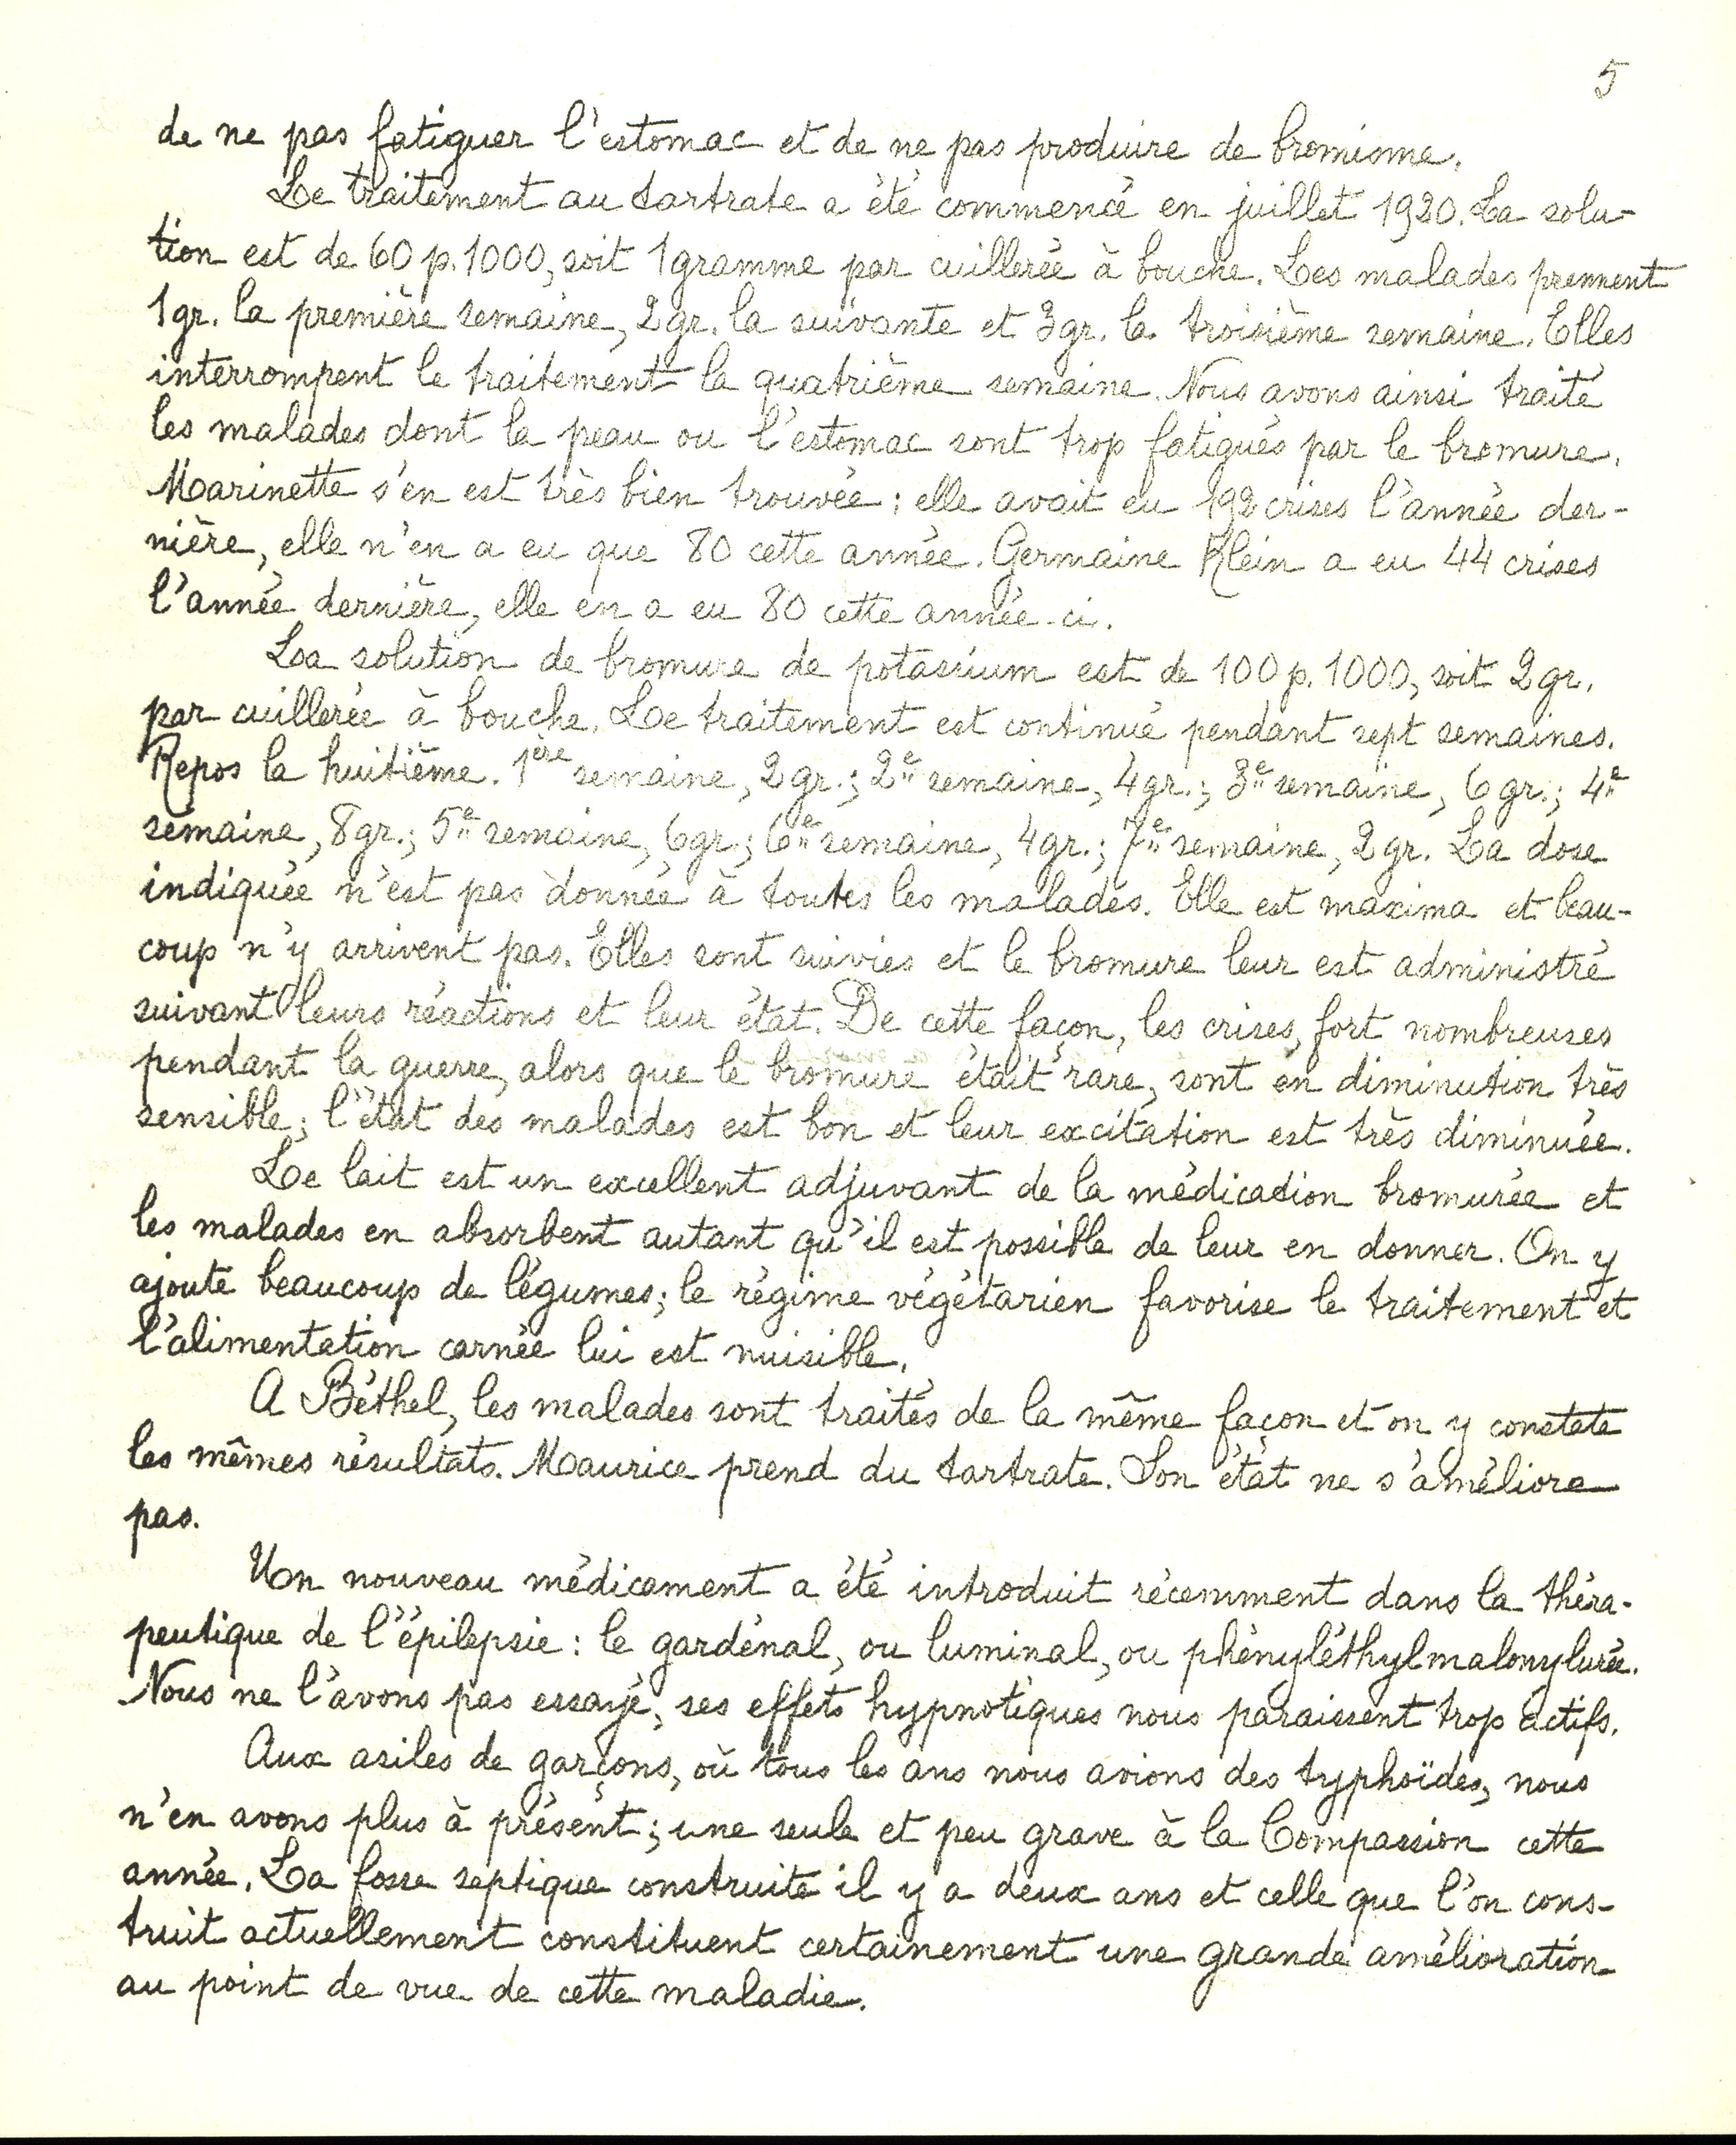 5
de ne pas fatiguer l'estomac et de ne pas produire de bromisme.
Le traitement au tartrate a été commencé en juillet 1920. La solu-
tion est de 60 p. 1000, soit 1 gramme par cuillerée à bouche. Les malades prennent
1 gr. la première semaine, 2 gr. la suivante et 3 gr. la troisième semaine. Elles
interrompent le traitement la quatrième semaine. Nous avons ainsi traité
les malades dont la peau ou l'estomac sont trop fatigués par le bromure.
Marinette s'en est très bien trouvée : elle avait eu 192 crises l'année der-
nière, elle n'en a eu que 80 cette année. Germaine Klein a eu 44 crises
l'année dernière, elle en a eu 80 cette année-ci.
La solution de bromure de potassium est de 100 p. 1000, soit 2 gr.
par cuillerée à bouche. Le traitement est continué pendant sept semaines.
Repos la huitième. 1ère semaine, 2 gr.; 2e semaine, 4 gr.; 3e semaine, 6 gr.; 4e
semaine, 8 gr.; 5e semaine, 6 gr.; 6e semaine, 4 gr.; 7e semaine, 2 gr. La dose
indiquée n'est pas donnée à toutes les malades. Elle est maxima et beau-
coup n'y arrivent pas. Elles sont suivies et le bromure leur est administré
suivant leurs réactions et leur état. De cette façon, les crises, fort nombreuses
pendant la guerre, alors que le bromure était rare, sont en diminution très
sensible; l'état des malades est bon et leur excitation est très diminuée.
Le lait est un excellent adjuvant de la médication bromurée et
les malades en absorbent autant qu'il est possible de leur en donner. On y
ajoute beaucoup de légumes; le régime végétarien favorise le traitement et
l'alimentation carnée lui est nuisible.
A Béthel, les malades sont traités de la même façon et on y constate
les mêmes résultats. Maurice prend du tartrate. Son état ne s'améliore
pas.
Un nouveau médicament a été introduit récemment dans la théra-
peutique de l'épilepsie : le gardénal, ou luminal, ou phényléthylmalonylurée.
Nous ne l'avons pas essayé, ses effets hypnotiques nous paraissent trop actifs.
Aux asiles de garçons, où tous les ans nous avions des typhoïdes, nous
n'en avons plus à présent; une seule et peu grave à la Compassion cette
année. La fosse septique construite il y a deux ans et celle que l'on cons-
truit actuellement constituent certainement une grande amélioration
au point de vue de cette maladie.